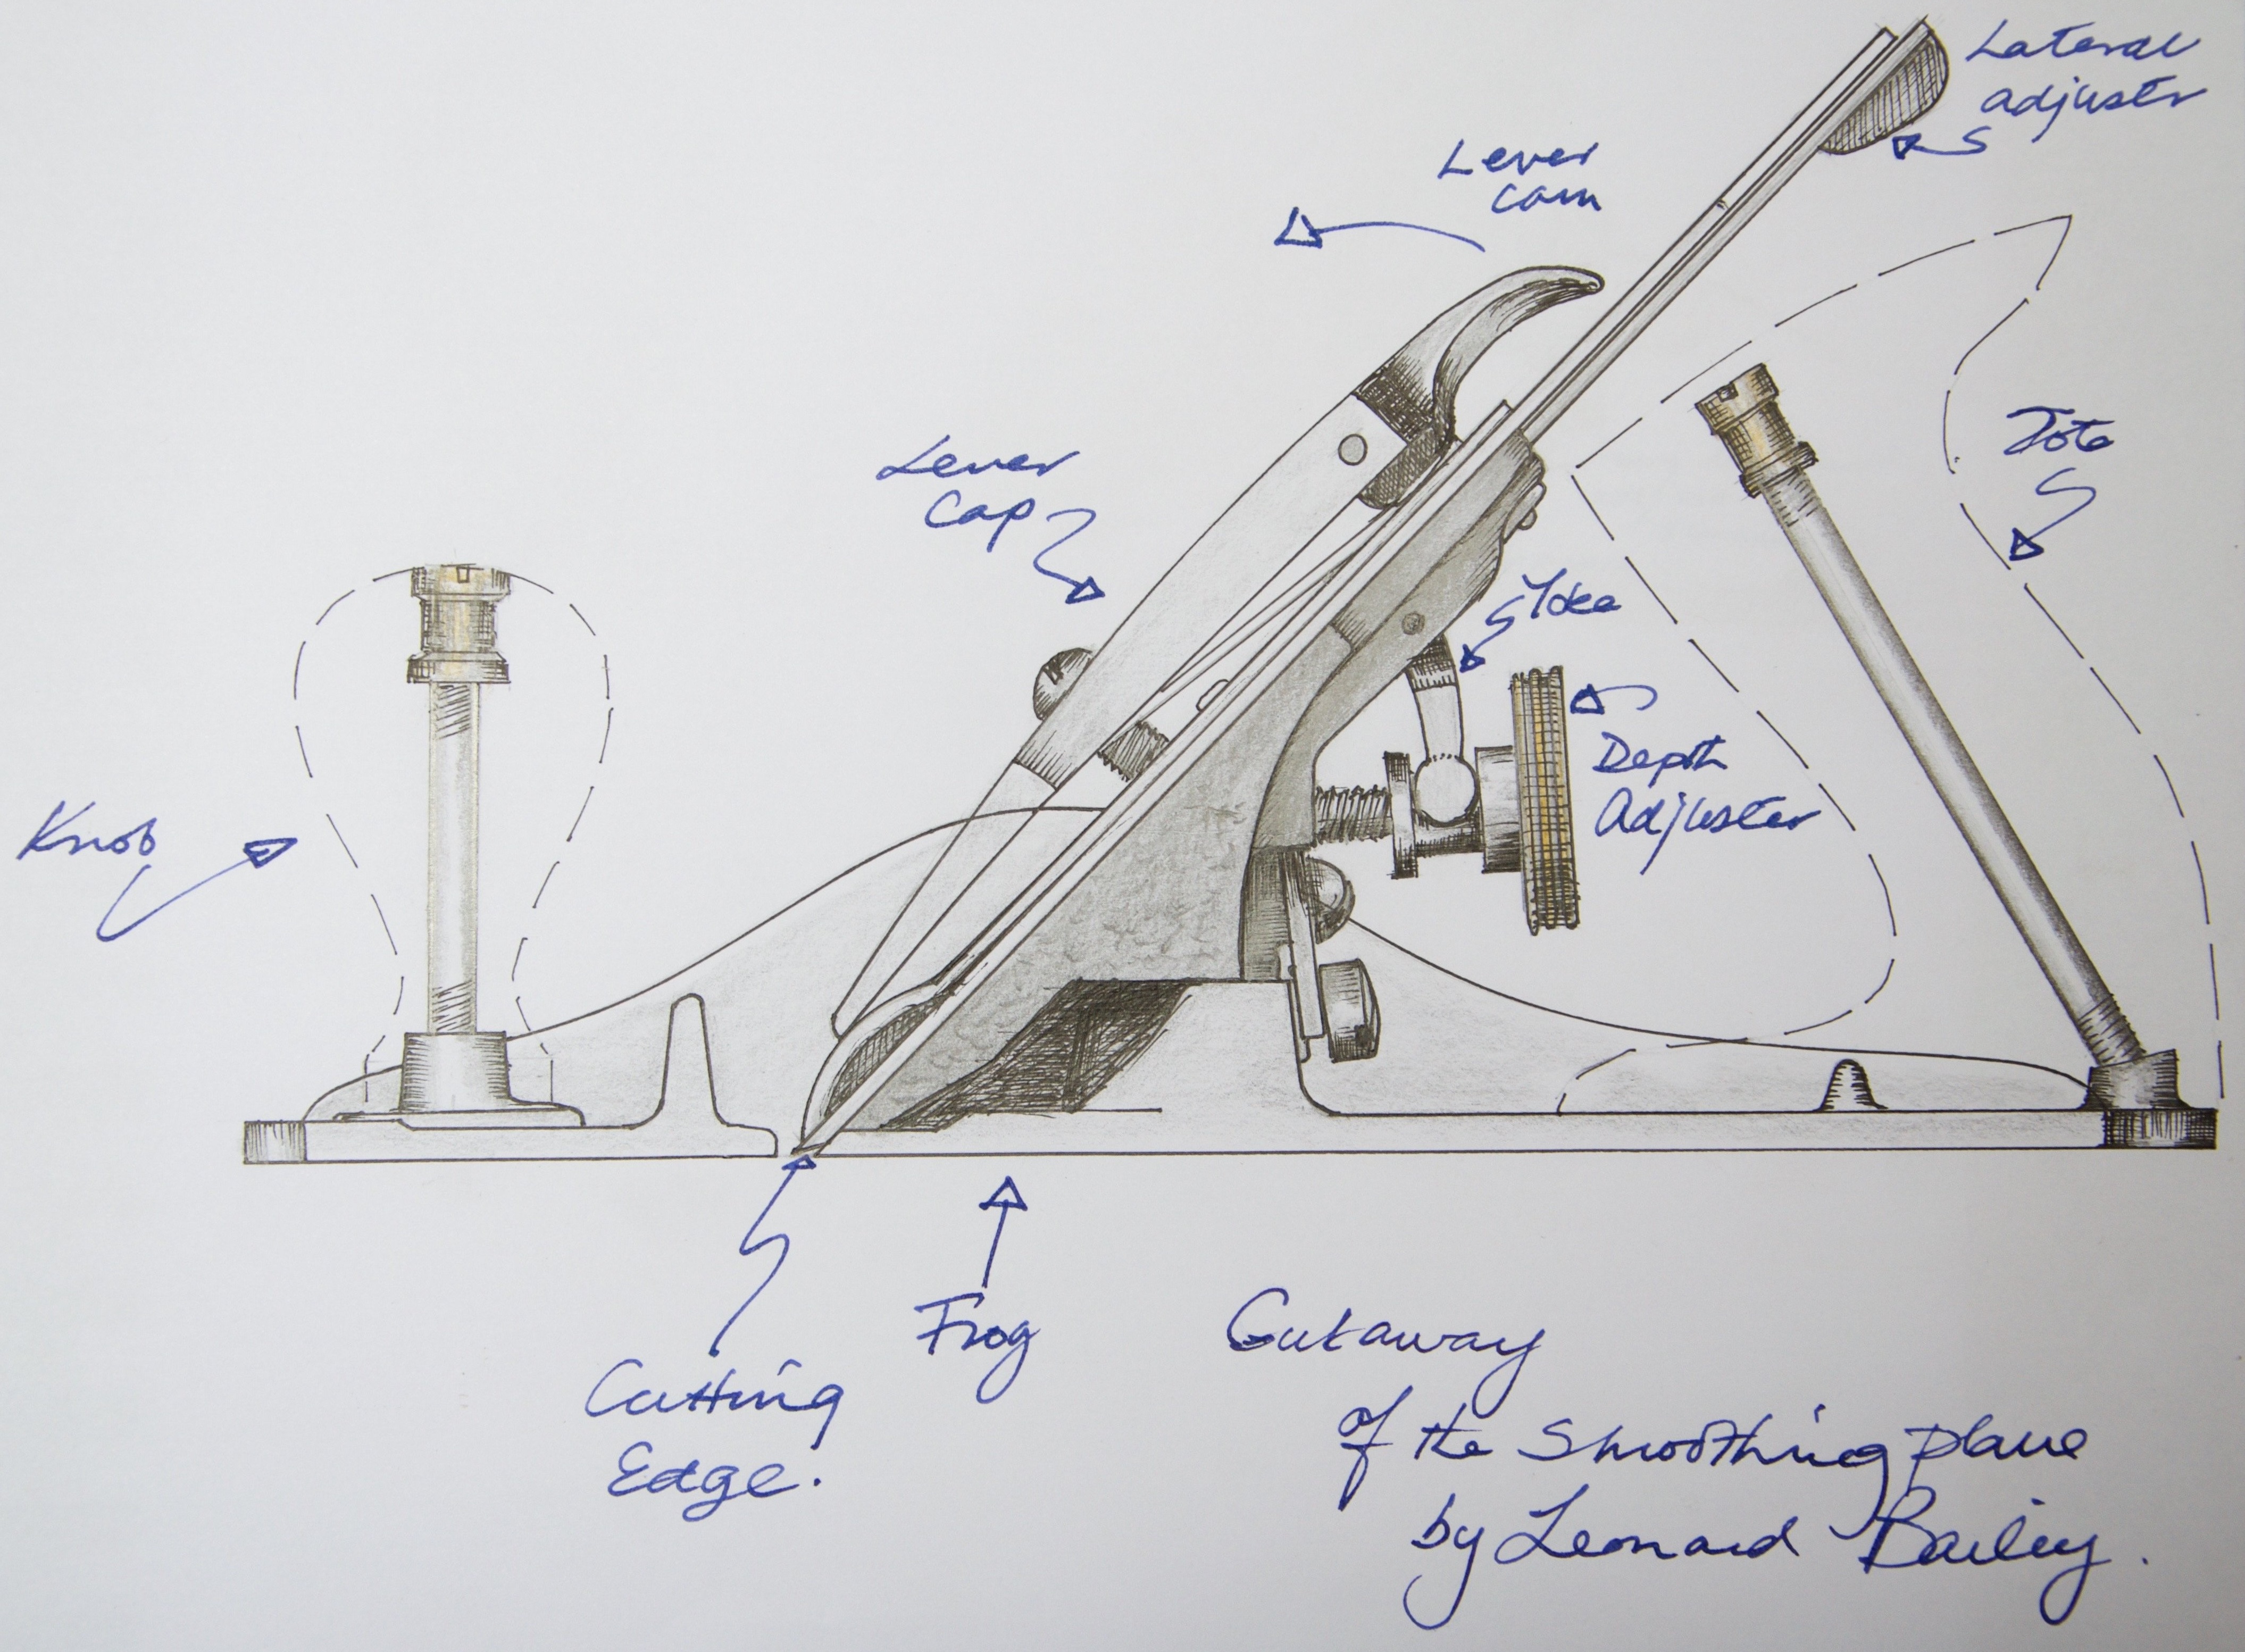 Lateral
adjuster
Lever
cam
Lever
Cap
Tote
Yoke
Depth
Adjuster
Knob
Frog
Cutting
Edge.
Cutaway
of the Smoothing plane
by Leonard Bailey.